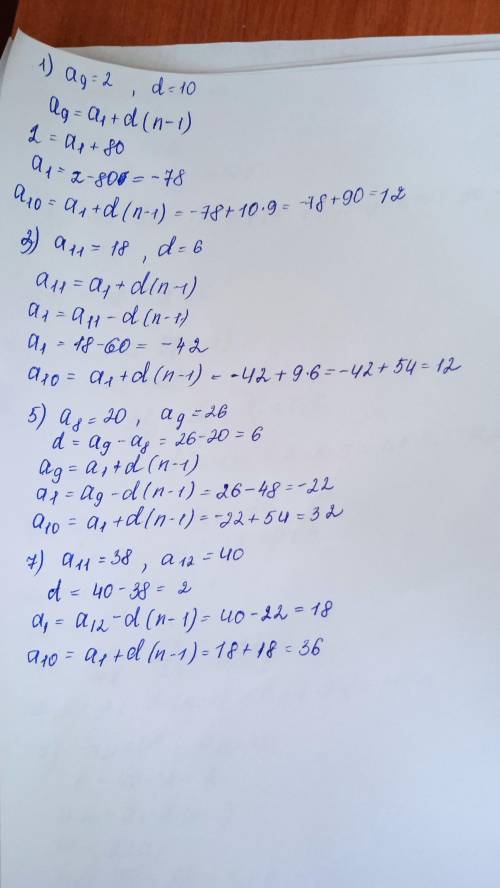 1) a9 = 2 , d = 10
a9 = a1 + d(n-1)
2 = a1 + 80
a1 = 2 - 80 = -78
a10 = a1 + d(n-1) = -78 + 10·9 = -78 + 90 = 12
3) a11 = 18 , d = 6
a11 = a1 + d(n-1)
a1 = a11 - d(n-1)
a1 = 18 - 60 = -42
a10 = a1 + d(n-1) = -42 + 9·6 = -42 + 54 = 12
5) a8 = 20 , a9 = 26
d = a9 - a8 = 26 - 20 = 6
a9 = a1 + d(n-1)
a1 = a9 - d(n-1) = 26 - 48 = -22
a10 = a1 + d(n-1) = -22 + 54 = 32
7) a11 = 38 , a12 = 40
d = 40 - 38 = 2
a1 = a12 - d(n-1) = 40 - 22 = 18
a10 = a1 + d(n-1) = 18 + 18 = 36